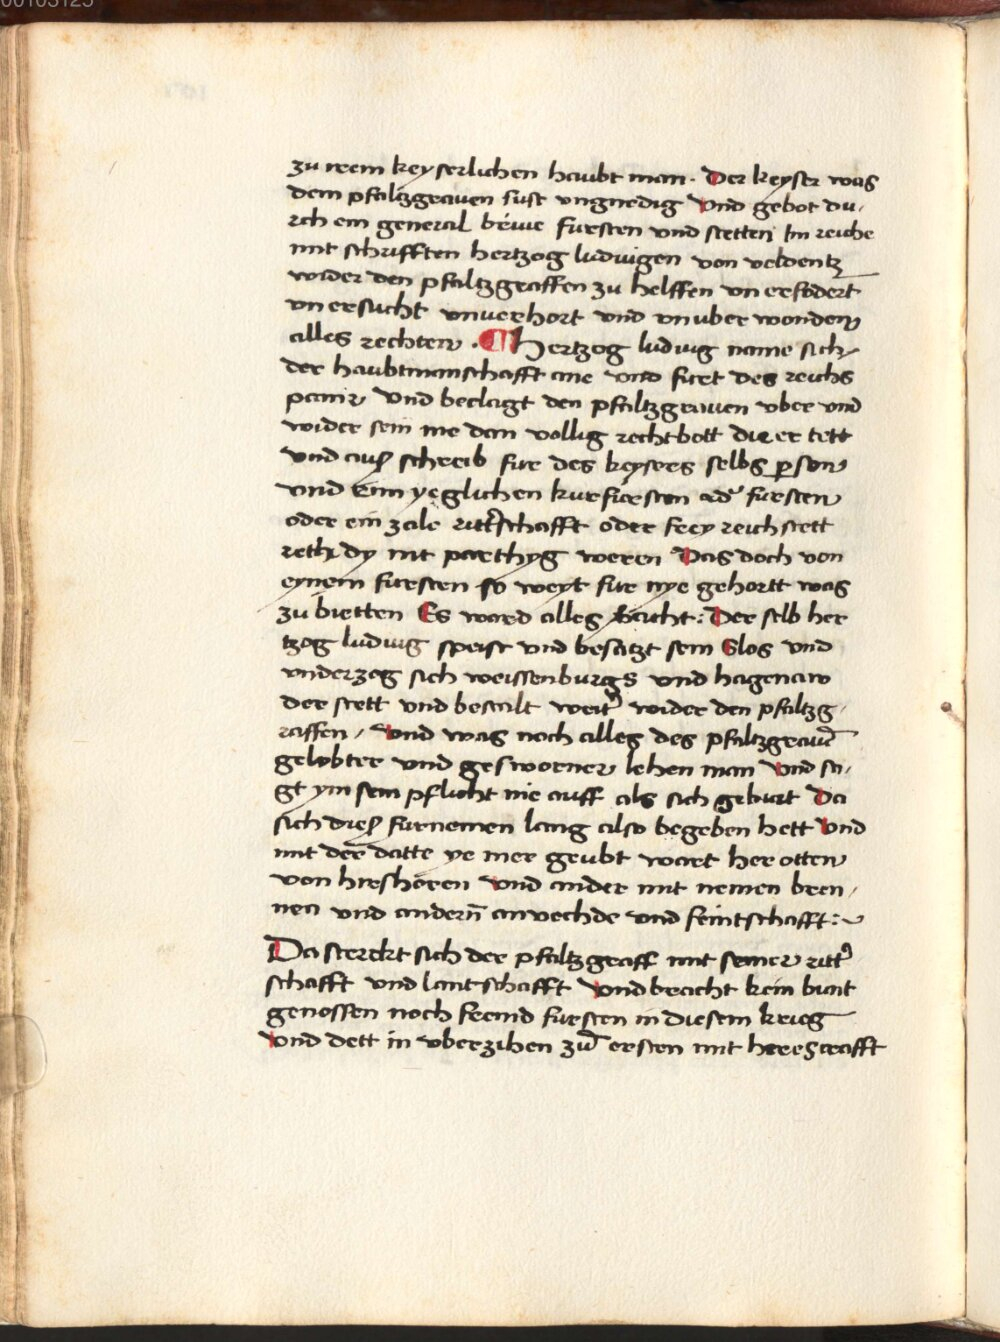 00103125
zu irem keyserlichen haubt man. Der keyser was
dem pfaltzgrauen sust vngnedig Vnd gebot du-
rch ein general brive fursten vnd stetten Im reiche
mit schrifften hertzog ludwigen von veldentz
wider den pfaltzgraffen zu helffen vn erfodert
vn ersucht vnuerhort vnd vnuber wonden
alles rechten. ¶ Hertzog ludwig name sich
der haubtmanschafft ane vnd furt des reichs
panir Vnd beclagt den pfaltzgrauen vber vnd
wider sein me dan vollig rechtbott die er tett
vnd auß schreib fur des keysers selbs person
vnd eim yeglichen kurfursten ad' fursten
oder ein zale ritt'schafft oder frey reichstett
reth dy nit parthyg weren Das doch von
eynem fursten so weyt fur nye gehortt was
zu bietten Es ward alles Der selb her
tzog ludwig speist vnd besatzt sein Slos vnd
vnderzog sich weissenburgs vnd hagenaw
der stett vnd bestalt weit' wider den pfaltzg-
raffen, Vnd was noch alles des pfaltzgrauē
gelobter vnd gesworner lehen man Vnd sa-
gt ym sein pflicht nie auff als sich geburt Da
sich dieß furnemen lang also begeben hett Vnd
mit der datte ye mer geubt wart her otten
von hirshoren Vnd ander mit nemen bren-
nen vnd andern̄ anvechde vnd feintschafft:~
Da sterckt sich der pfaltzgraff mit seiner ritt'
schafft vnd lantschafft Vnd bracht kein bunt
genossen noch fremd fursten in diesem krieg
Vnd dett in vberzihen zū ersten mit herescrafft